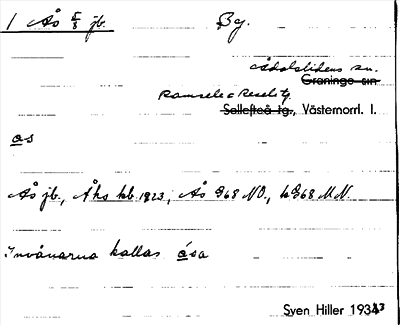 1 Ås jb. By.
Ådalslidens sn.
Graninge sn
Ramsele o Resele tg.
Sollefteå tg., Västernorrl. l.
ås
Ås jb., Åhs kb 1723, Ås 968 NO., 968 M.N.
Invånarna kallas åsa
Sven Hiller 1933